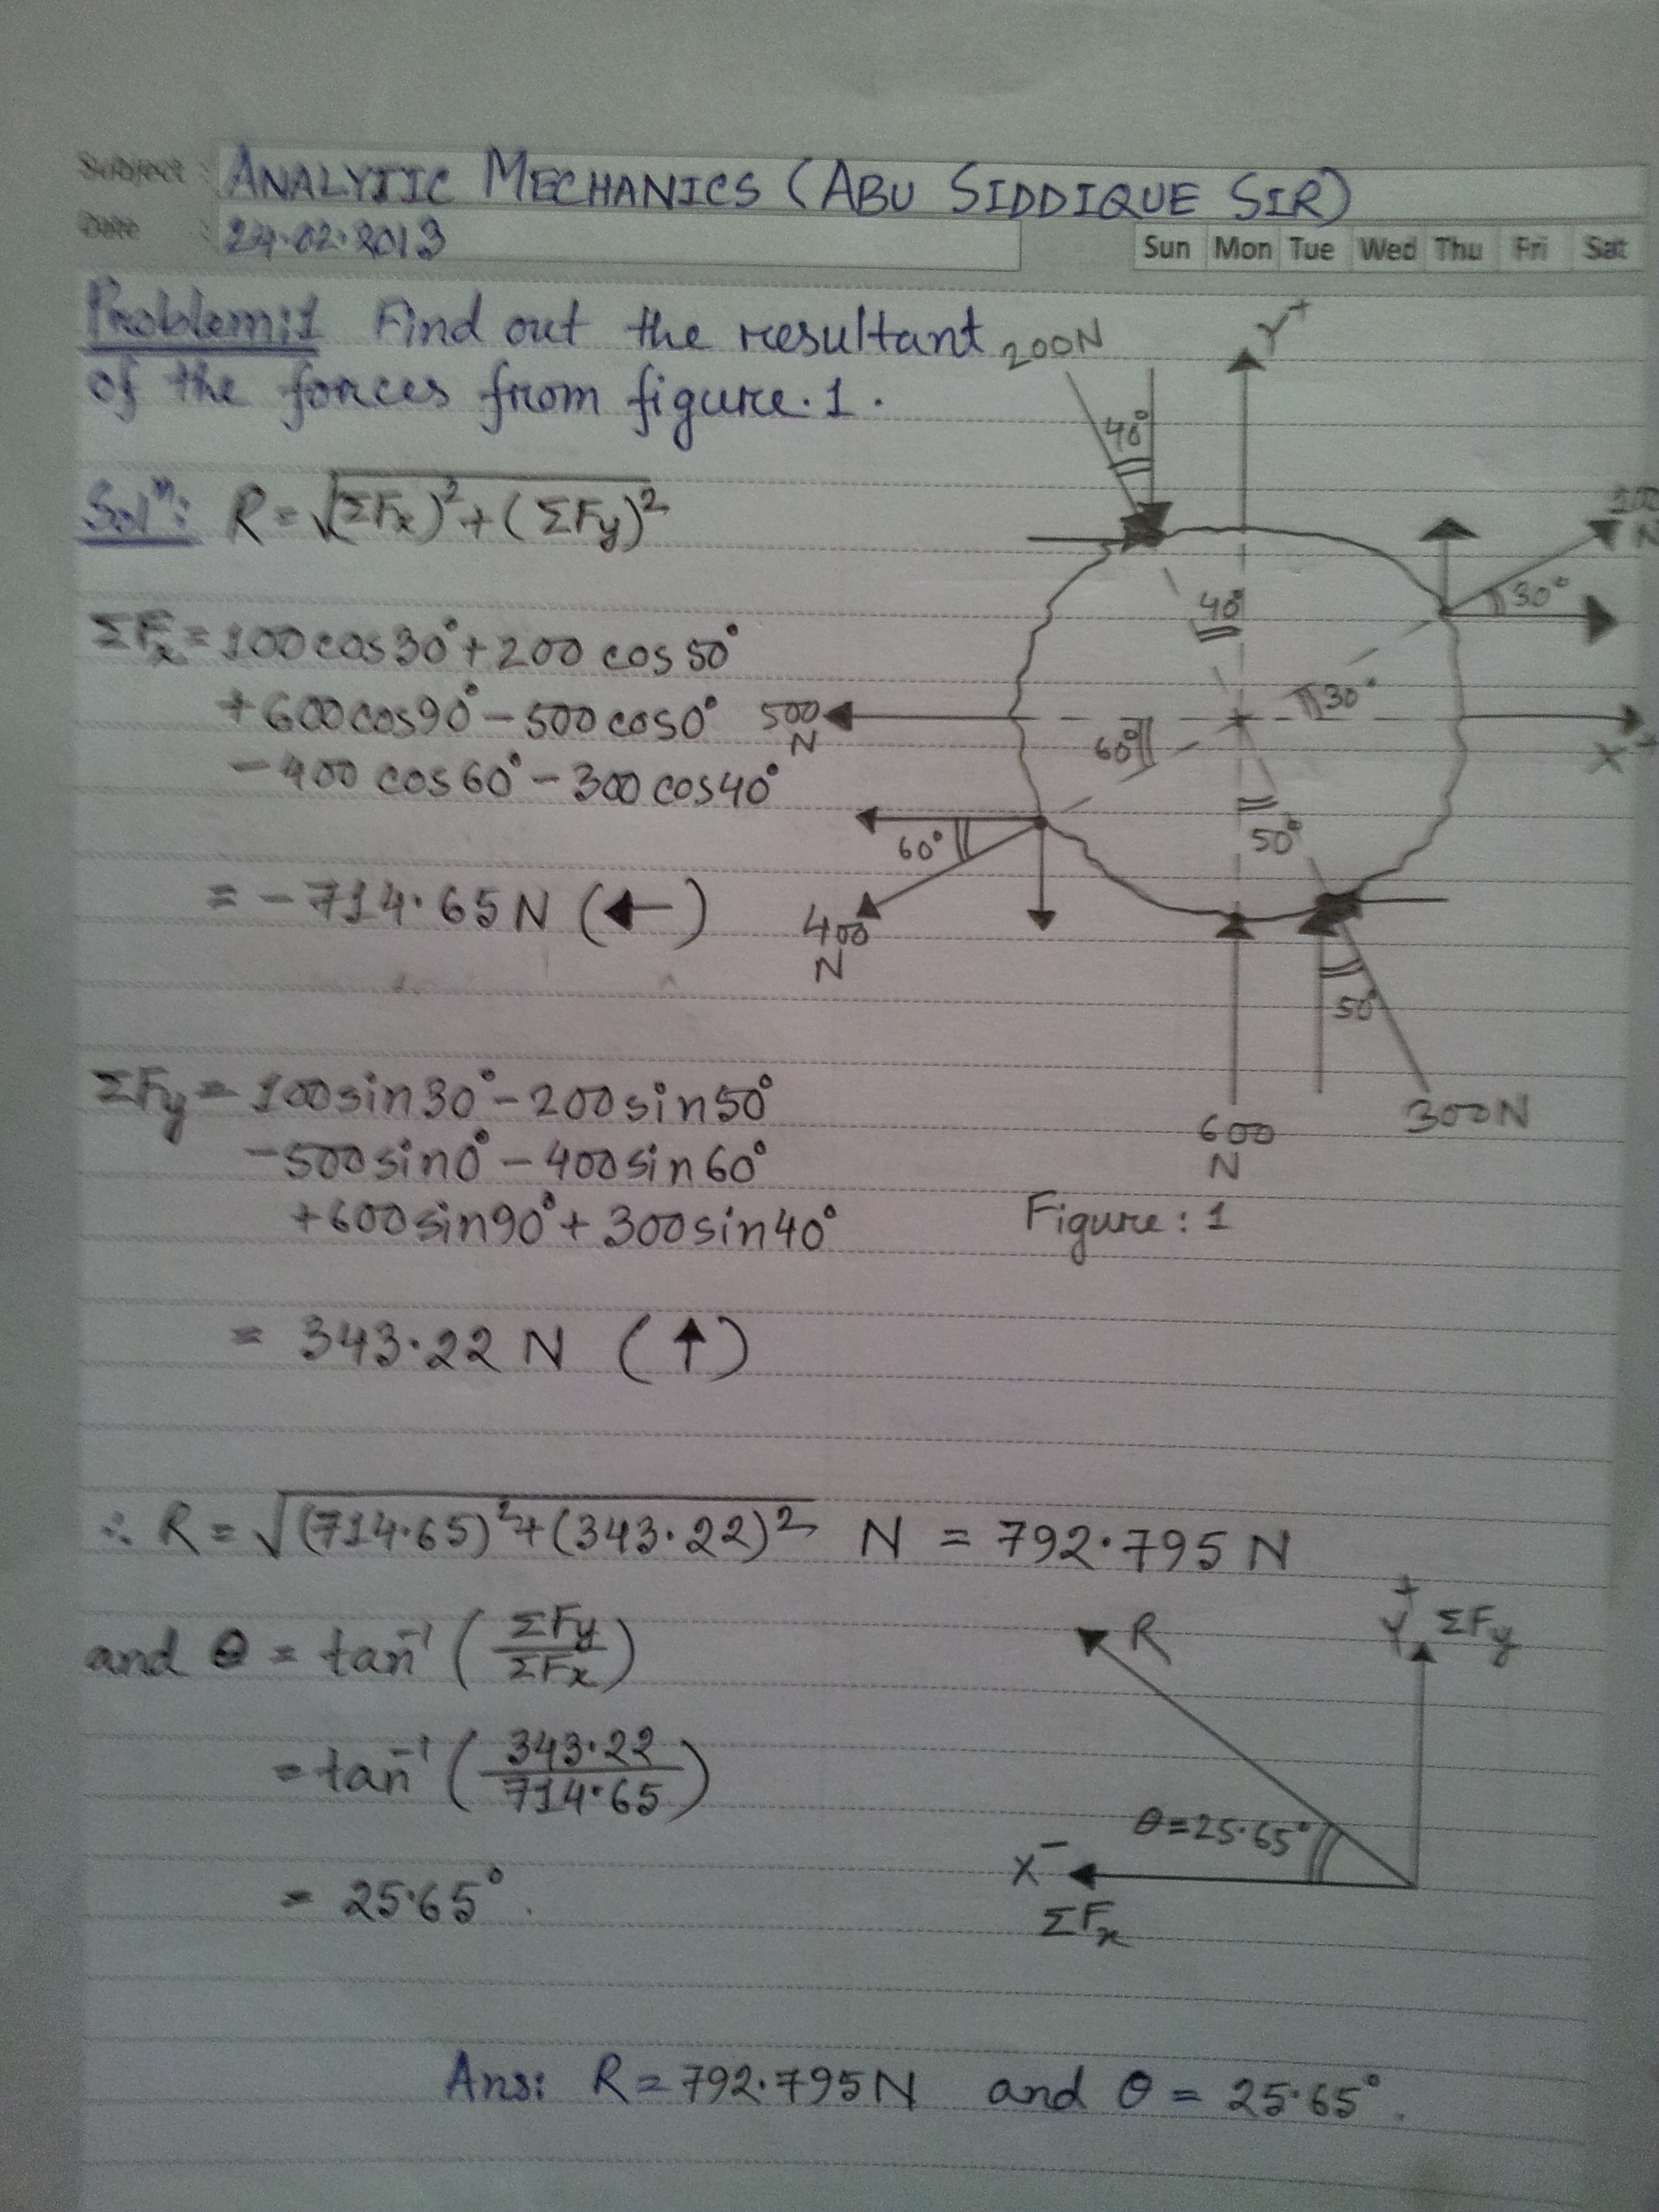 Subject : ANALYTIC MECHANICS (ABU SIDDIQUE SIR)
Date : 24.02.2013
Sun Mon Tue Wed Thu Fri Sat
Problem:1 Find out the resultant
of the forces from figure.1.
Solⁿ: R = √(ΣFx)² + (ΣFy)²
ΣFx = 100cos30° + 200 cos 50°
+600cos90° - 500 cos0°
- 400 cos60° - 300 cos40°
= - 714.65 N (←)
ΣFy = 100sin30° - 200sin50°
-500sin0° - 400sin60°
+600sin90° + 300sin40°
= 343.22 N (↑)
200N
Y+
40°
30°
40°
30°
500
N
60°
X+
50°
60°
400
N
50°
600
N
300N
Figure: 1
∴ R = √(714.65)² + (343.22)² N = 792.795 N
and θ = tan⁻¹ (ΣFy/ΣFx)
= tan⁻¹ (343.22/714.65)
= 25.65°.
R
Y+ ΣFy
θ=25.65°
X-
ΣFx
Ans: R = 792.795N and θ = 25.65°.